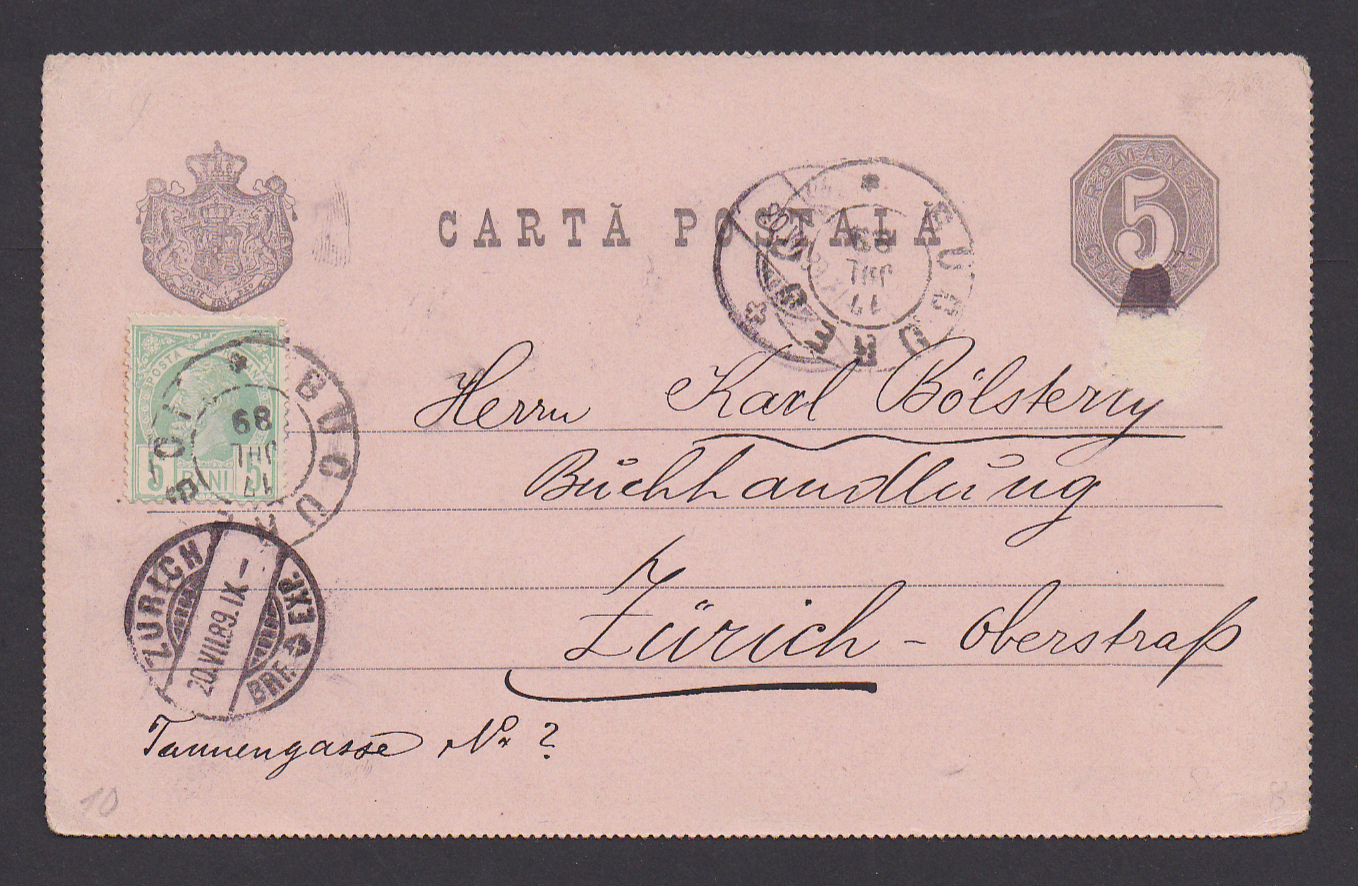 CARTĂ POSTALĂ
ROMANIA
5
BUCUR
17
JUL
89
POSTA
5 BANI 5
BUCUR
17
JUL
89
ZÜRICH
20.VII.89.IX-
BRF. EXP.
Herrn Karl Bölsterly
Buchhandlung
Zürich - Oberstraß
Tannengasse No. ?
10
8